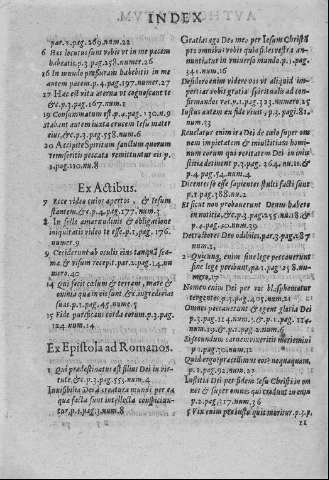 INDEX
par.2.pag.269.num.22
6 Hæc locutus sum vobis vt in me pacem
habeatis.p.3.pag.258.numer.26
16 In mundo pressuram habebitis in me
autem pacem p.4.pag.197.numer.27
27 Hæc est vita æterna vt cognoscant te
&c.p.3.pag.167.num.2
19 Consummatum est p.4.pag. 130.n.9
stabant autem iuxta crucem Iesu mater
eius,&c.p.3.pag.558.num.6
20 Accipite Spiritum sanctum quorum
remiseritis peccata remittuntur eis p.
2.pag.110.nu.8
Ex Actibus.
7 Ecce video cælos apertos , & Iesum
stantem,&c.p.4.pag.177.num.3
8 In felle amaritudinis & obligatione
iniquitatis video te esse.p.1.pag. 176.
numer.9
9 Ceciderunt ab oculis eius tanquã squa-
mæ & visum recepit.par.2.pag.14.nu
mero.40
14 Qui fecit cælum & terram , mare &
omnia quæ in eis sunt &c.ingredi vias
suas.p.1.pag.45.num.5
15 Fide purificans corda eorum.p.3.pag.
124.num.14
Ex Epistola ad Romanos.
1 Qui prædestinatus est filius Dei in vir-
tute,&c.p.3.pag.555.num.4
Inuisibilia Dei à creatura mundi per ea
quæ facta sunt intellecta conspiciun-
tur,p.1.pag.3.num.8
Gratias ago Deo meo per Iesum Christũ
pro omnibus vobis quia fides vestra an-
nuntiatur in vniuerso mundo p.1.pag.
341.num.16
Desidero enim videre vos vt aliquid im-
pertiar vobis gratiæ spiritualis ad con-
firmandos vos.p.1.pag.323.numero.25
Iustus autem ex fide viuit , p.3.pag.
81.num.13
Reuelatur enim ira Dei de cælo super om
nem impietatem & iniustitiam homi-
num eorum qui veritatem Dei in iniu-
stitia detinent p.3.pag. 264, nu.11.&
p.4.pag.54.num.4
Dicentes se esse sapientes stulti facti sunt
p.1.pag.388.nu.2
Et sicut non probauerunt Deum habere
in notitia,&c.p.3.pag.255.nu.18,&
p.4.pag.40.num.39
Detractores Deo odibiles,par.3.pag.287
num.2
2 Quicunq; enim sine lege peccauerunt
sine lege peribunt,pa.2.pag.23 8.nu-
mero.17
Nomen enim Dei per vos blasphematur
inter gentes.p.3.pag.405.num.21
Omnes peccauerunt & egent gloria Dei
p.3.pag.124.num.2.& p.1.pag. 214.
num.19.& p.2.pag.2.num.6
Si secundum carnem vixeritis moriemini
p.1.pag.30.num.12
Quid ergo præcellimus eos? nequaquam,
p.2.pag.92.num.22
Iustitia Dei per fidem Iesu Christi in om
nes & super omnes qui credunt in eum
p.2.pag.317.num.36
5 Vix enim pro iusto quis moritur.p.3.p.